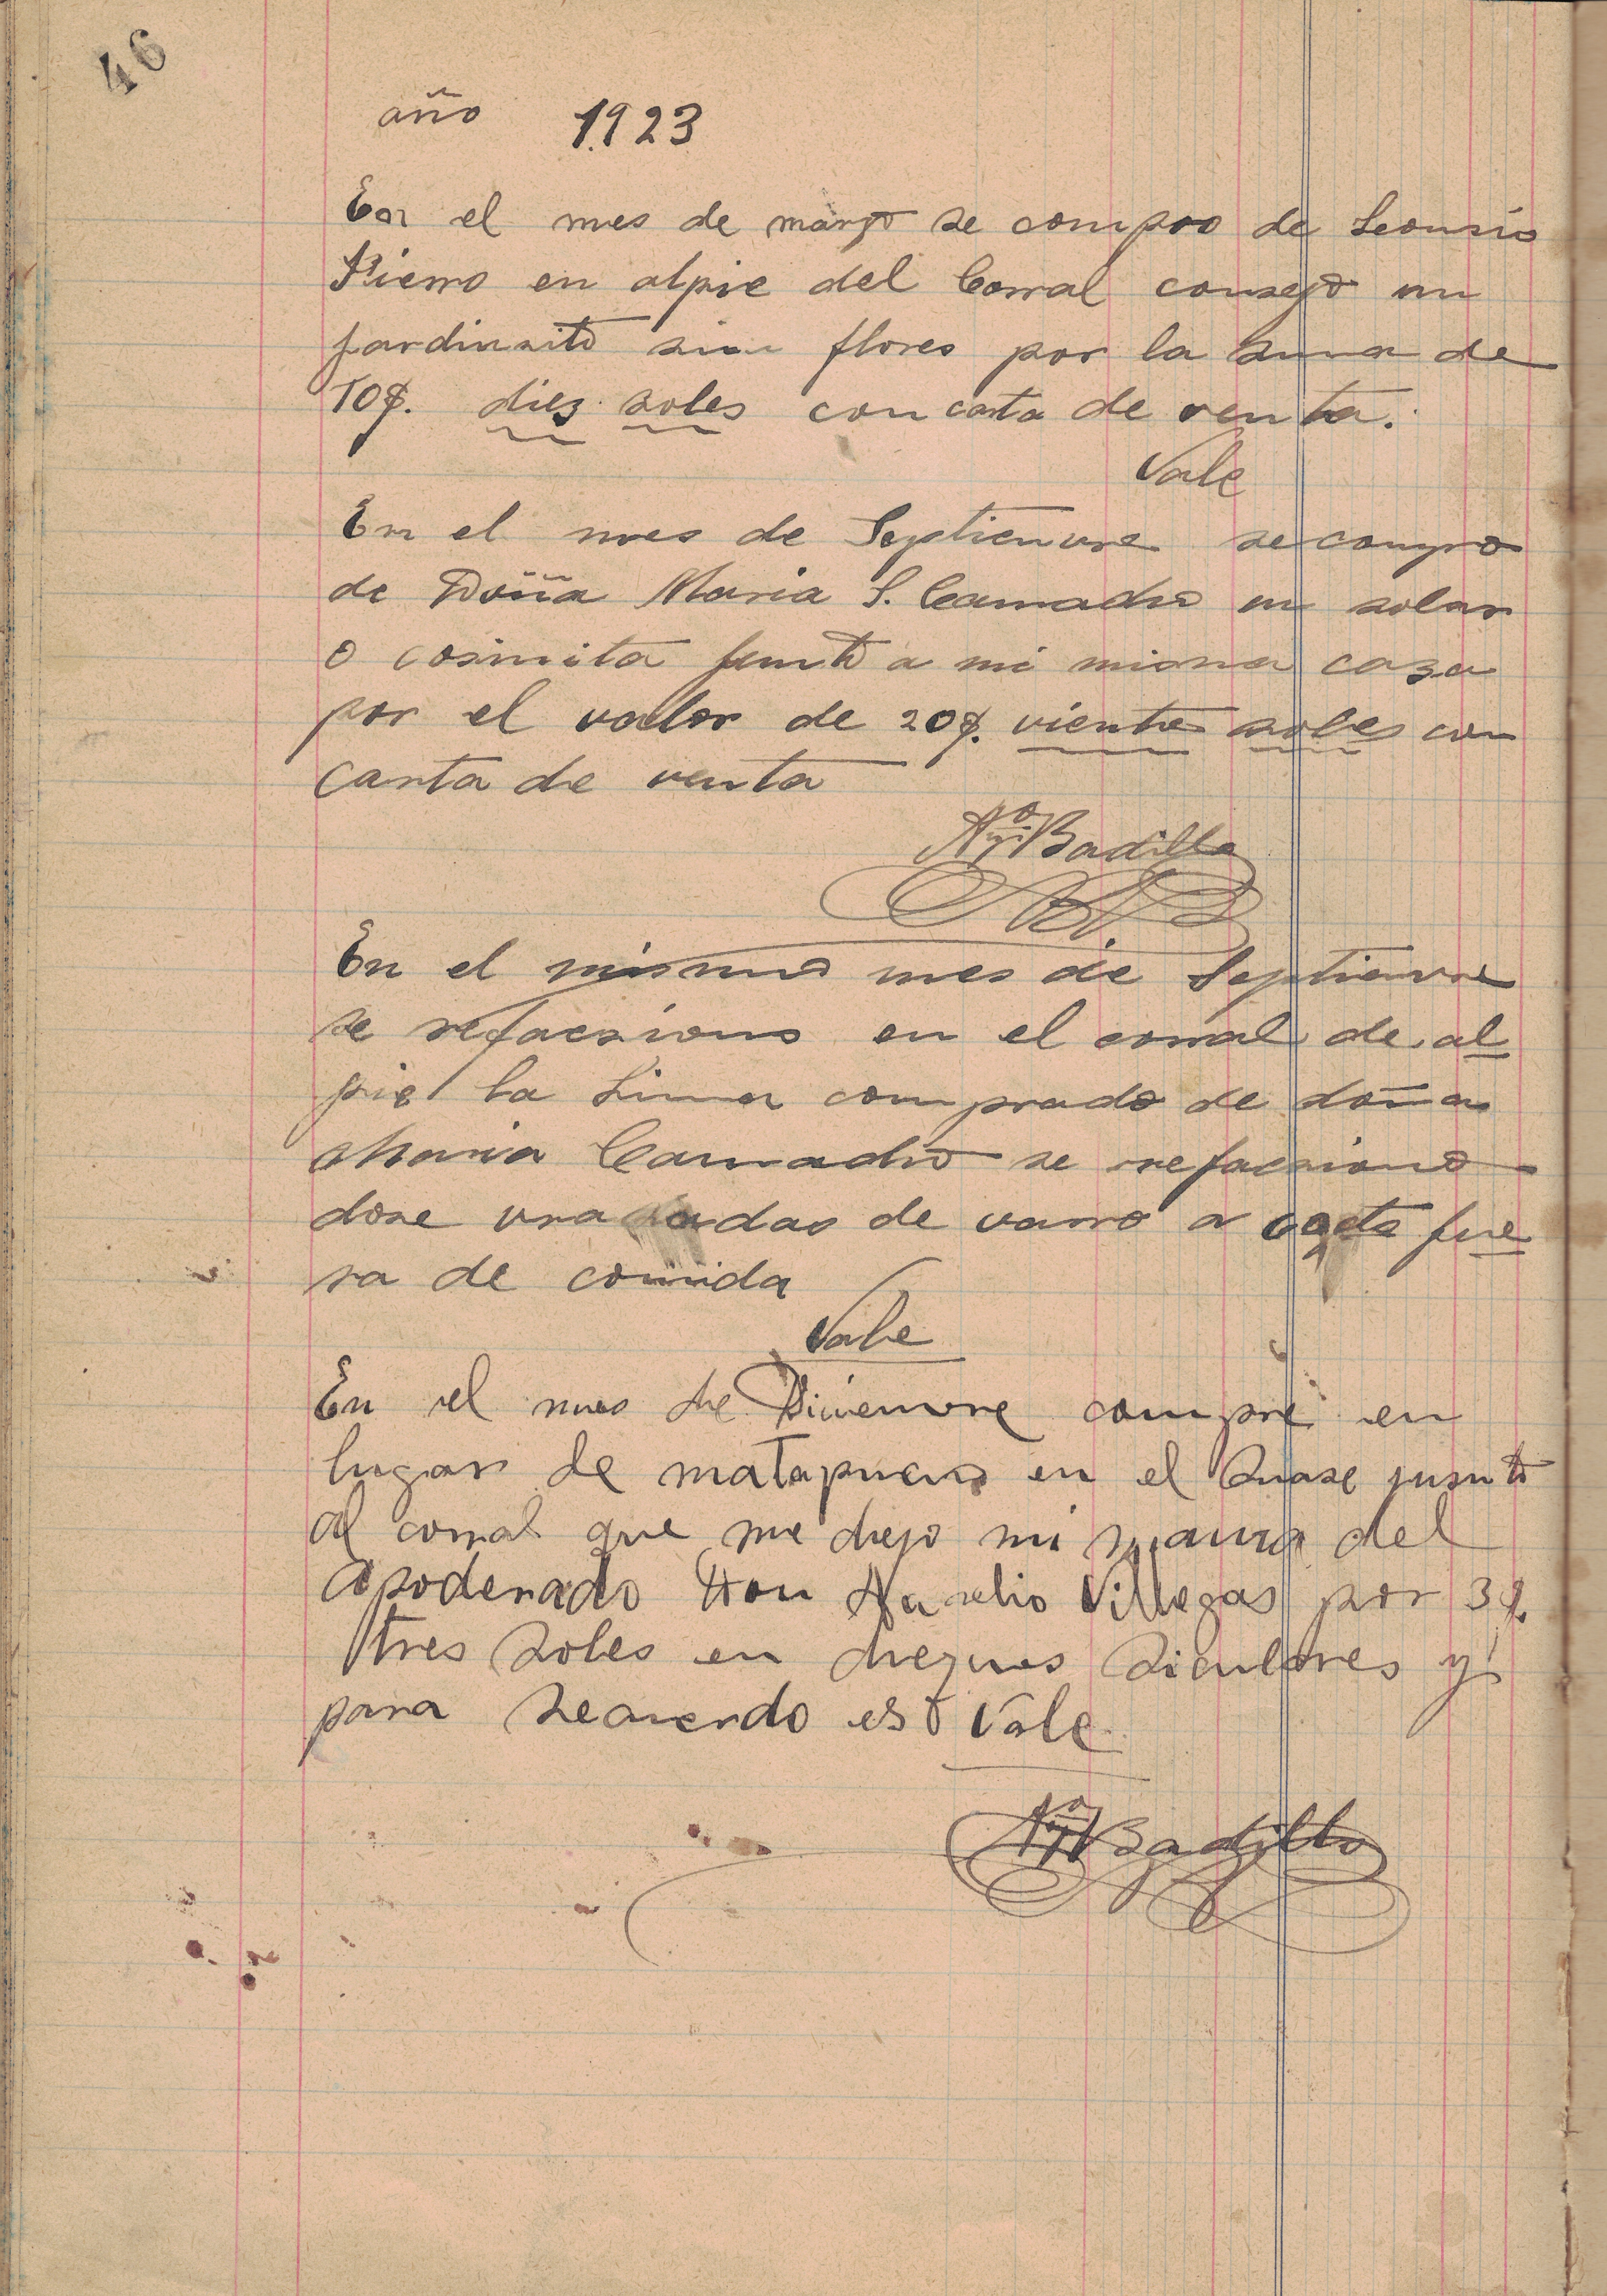 46
año 1923
En el mes de março se compro de Leonsio
Fierro en alpie del Corral consejo un
jardinsito sin flores por la suma de
10$. diez soles con carta de venta.
Vale
En el mes de Septienvre se compro
de Doña Maria S. Camacho un solar
o cosinita junto a mi misma caza
por el valor de 20$. viente soles con
carta de venta
Badillo
En el mismo mes de Septienvre
se refacsiono en el corral de al
pie la comprado de doña
Maria Camacho se refacsiono
dose vrasadas de varro a fue
ra de comida
Vale
En el mes de Disienvre compre en
lugar de matapuerco en el junto
al corral que me dejo mi mama del
Apoderado Don Aurelio Villegas por 3$.
tres soles en cheques siculares y
para recuerdo esto Vale
Badillo